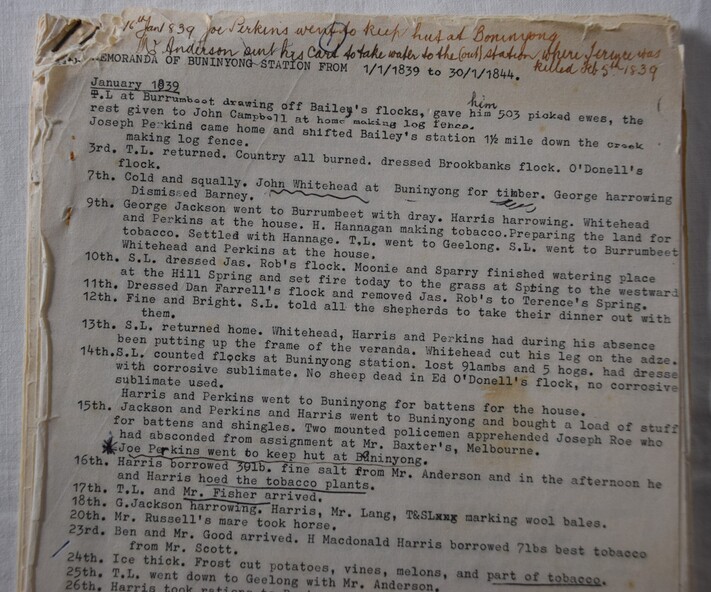 16th Jan 1839 Joe Perkins went to keep hut at Boninyong
Mr. Anderson sent his Card to take water to the (out) station where Terence was
killed Feb 5th 1839
MEMORANDA OF BUNINYONG STATION FROM 1/1/1839 to 30/1/1844.
January 1839
him
T.L at Burrumbeet drawing off Bailey's flocks, gave him 503 picked ewes, the
rest given to John Campbell at home making log fence.
Joseph Perkind came home and shifted Bailey's station 1½ mile down the creek
making log fence.
3rd. T.L. returned. Country all burned. dressed Brookbanks flock. O'Donell's
flock.
7th. Cold and squally. John Whitehead at Buninyong for timber. George harrowing
Dismissed Barney.
9th. George Jackson went to Burrumbeet with dray. Harris harrowing. Whitehead
and Perkins at the house. H. Hannagan making tobacco.Preparing the land for
tobacco. Settled with Hannage. T.L. went to Geelong. S.L. went to Burrumbeet
Whitehead and Perkins at the house.
10th. S.L. dressed Jas. Rob's flock. Moonie and Sparry finished watering place
at the Hill Spring and set fire today to the grass at Spting to the westward
11th. Dressed Dan Farrell's flock and removed Jas. Rob's to Terence's Spring.
12th. Fine and Bright. S.L. told all the shepherds to take their dinner out with
them.
13th. S.L. returned home. Whitehead, Harris and Perkins had during his absence
been putting up the frame of the veranda. Whitehead cut his leg on the adze.
14th.S.L. counted flocks at Buninyong station. lost 9lambs and 5 hogs. had dresse
with corrosive sublimate. No sheep dead in Ed O'Donell's flock, no corrosive
sublimate used.
Harris and Perkins went to Buninyong for battens for the house.
15th. Jackson and Perkins and Harris went to Buninyong and bought a load of stuff
for battens and shingles. Two mounted policemen apprehended Joseph Roe who
had absconded from assignment at Mr. Baxter's, Melbourne.
*Joe Perkins went to keep hut at Buninyong.
16th. Harris borrowed 39lb. fine salt from Mr. Anderson and in the afternoon he
and Harris hoed the tobacco plants.
17th. T.L. and Mr. Fisher arrived.
18th. G.Jackson harrowing. Harris, Mr. Lang, T&SLxxx marking wool bales.
20th. Mr. Russell's mare took horse.
23rd. Ben and Mr. Good arrived. H Macdonald Harris borrowed 7lbs best tobacco
from Mr. Scott.
24th. Ice thick. Frost cut potatoes, vines, melons, and part of tobacco.
25th. T.L. went down to Geelong with Mr. Anderson.
26th. Harris took rations to